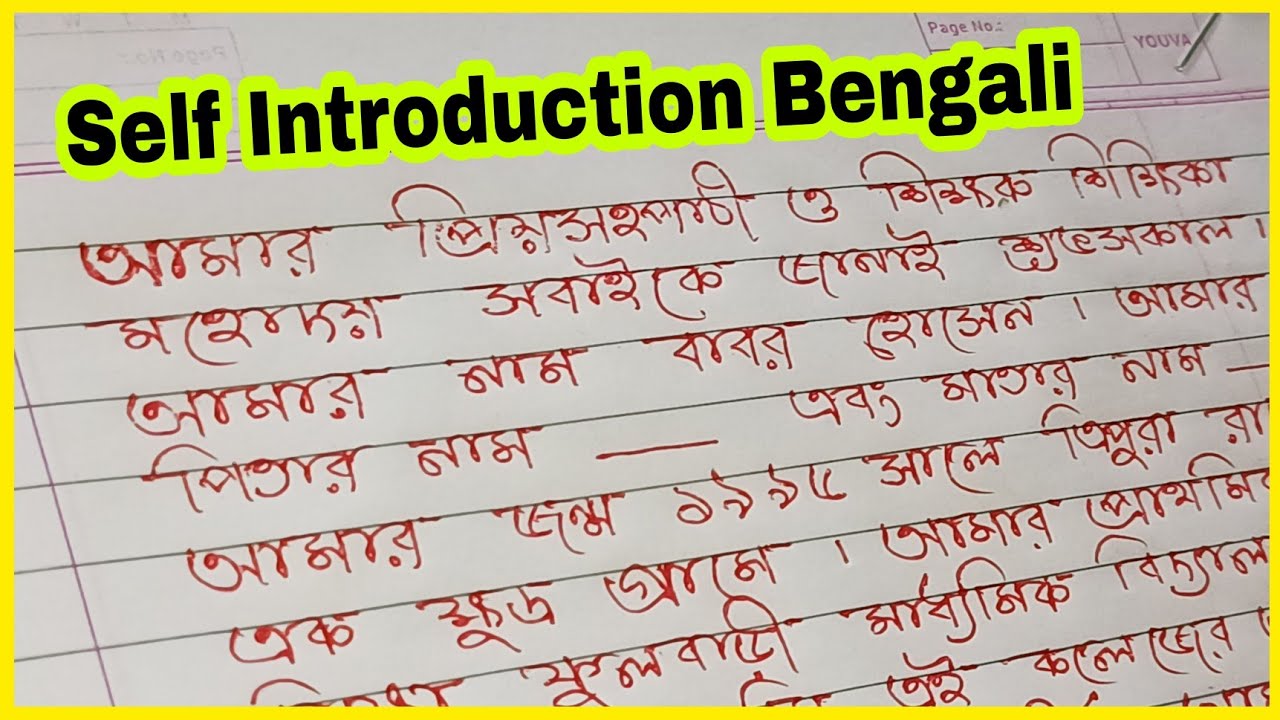 Page No.:
YOUVA
Self Introduction Bengali
আমার প্রিয় সহপাঠী ও শিক্ষক শিক্ষিকা
মহোদয় সবাইকে জানাই শুভ সকাল।
আমার নাম বাবর হোসেন। আমার
পিতার নাম — এবং মাতার নাম —
আমার জন্ম ১৯৯৫ সালে ত্রিপুরা
এক ক্ষুদ্র গ্রামে। আমার
ফুলবাড়ী মাধ্যমিক
এই কলেজের